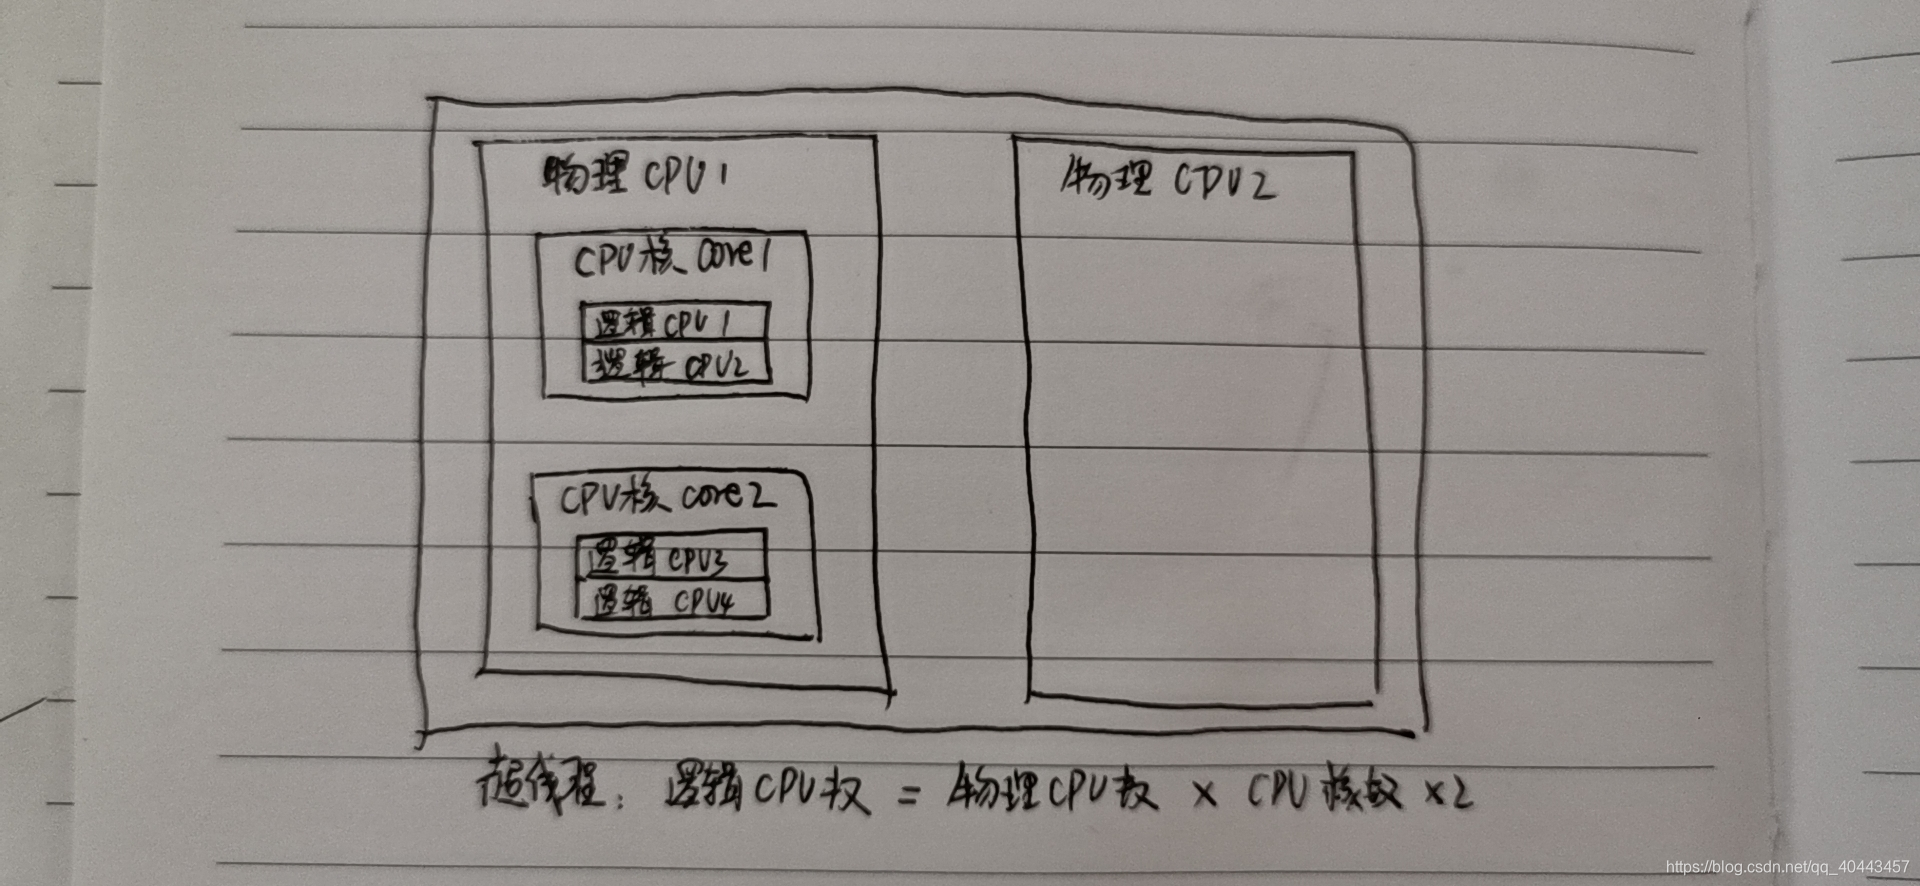 物理 CPU 1
物理 CPU 2
CPU核 core1
逻辑 CPU 1
逻辑 CPU2
CPU核 core2
逻辑 CPU3
逻辑 CPU4
超线程: 逻辑CPU数 = 物理CPU数 × CPU 核数 ×2
https://blog.csdn.net/qq_40443457